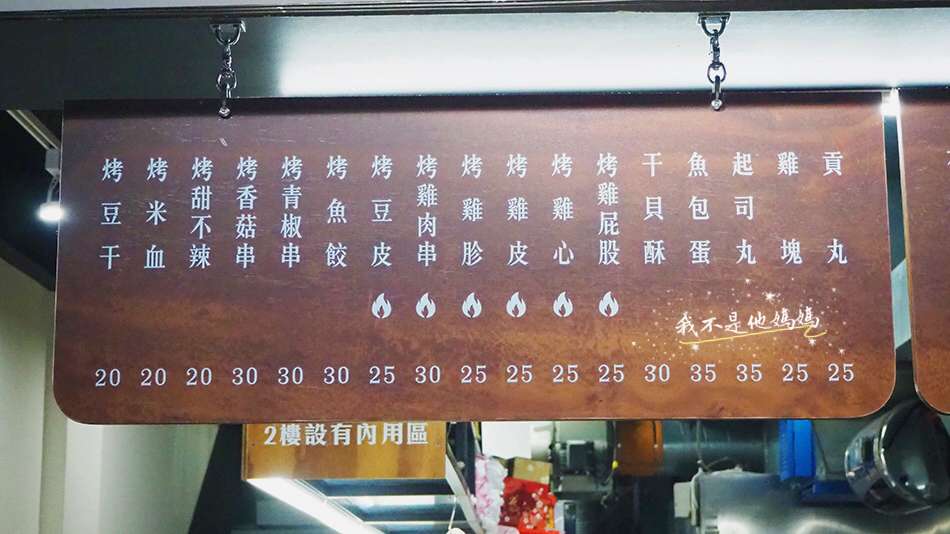 貢丸
雞塊
起司丸
魚包蛋
干貝酥
烤雞屁股
烤雞心
烤雞皮
烤雞胗
烤雞肉串
烤豆皮
烤魚餃
烤青椒串
烤香菇串
烤甜不辣
烤米血
烤豆干
20 20 20 30 30 30 25 30 25 25 25 25 30 35 35 25 25
我不是他媽媽
2樓設有內用區